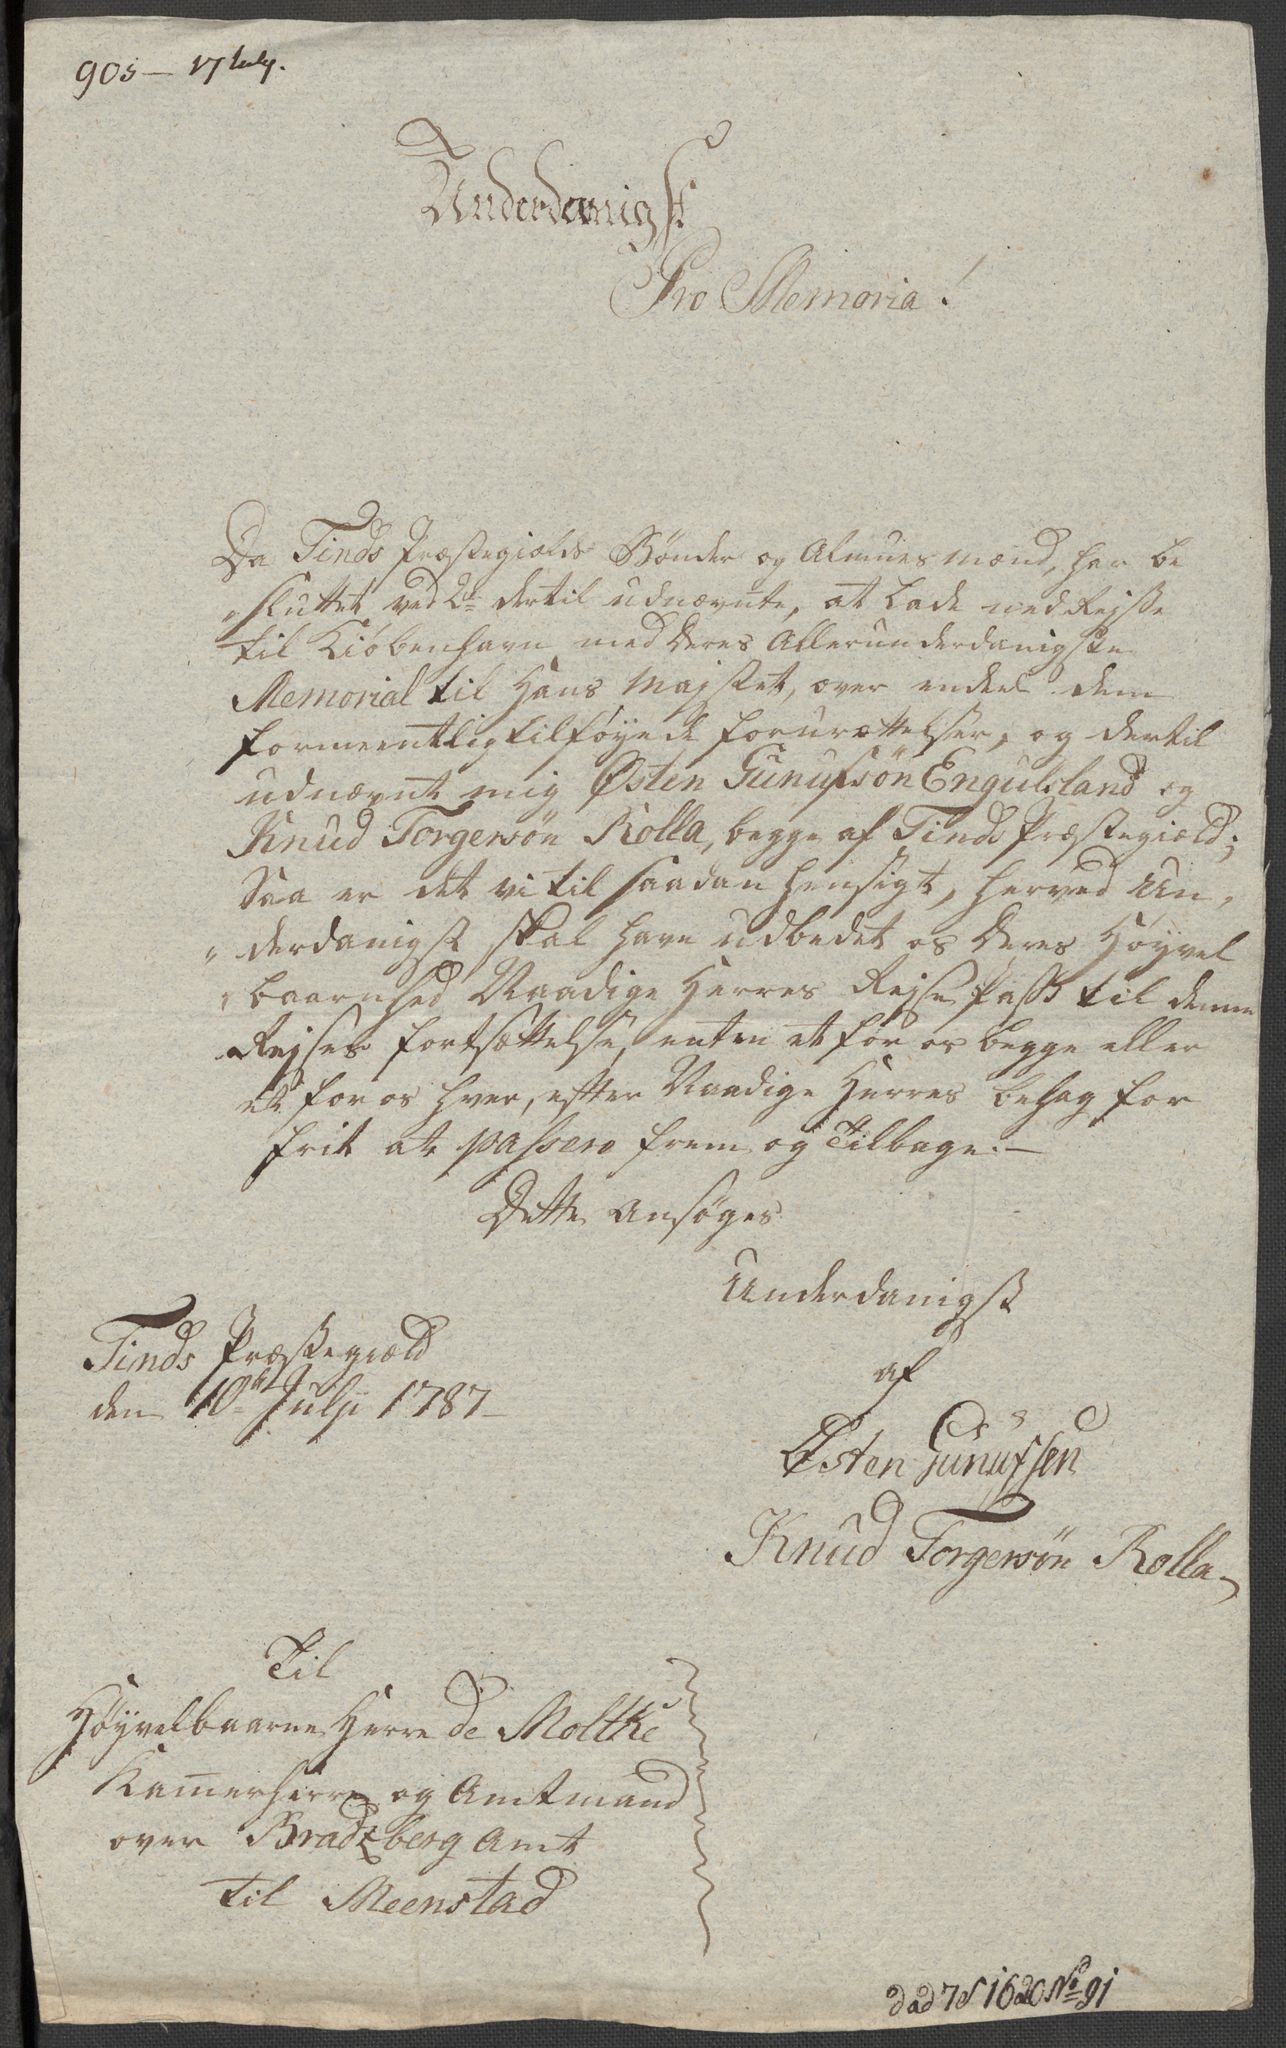 905 – 17 July.
Underdanigst
Pro Memoria!
Da Tinds Præstegields Bønder og Almues mænd, har be
sluttet ved 2de dertil udnævnte, at lade nedRejse
til Kiøbenhavn med deres Allerunderdanigste
Memorial til Hans Majstet, over endeel dem
formeentlig tilføyede forurættelser, og dertil
udnævnt mig Østen Gunulfsøn Engulsland og
Knud Torgersøn Rolla, begge af Tinds Præstegield;
Saa er det vi til saadan hensigt, herved Un,
„derdanigst skal have udbedet os Deres Høyvel
„baarnhed Naadige Herres Rejse Pass til denne
Rejses fortsættelse, enten et for os begge eller
et for os hver, efter Naadige Herres behag for
frit at passere frem og Tilbage.–
Dette ansøges
Underdanigst
af
Tinds Præstegield
den 10de Julji 1787–
Østen Gunulfsen
Knud Torgersøn Rolla
Til
Høyvelbaarne Herre de Moltke
Kam̄erherre og Amtmand
over Bradsberg Amt
til Meenstad
dad 7 S 1620 No 91